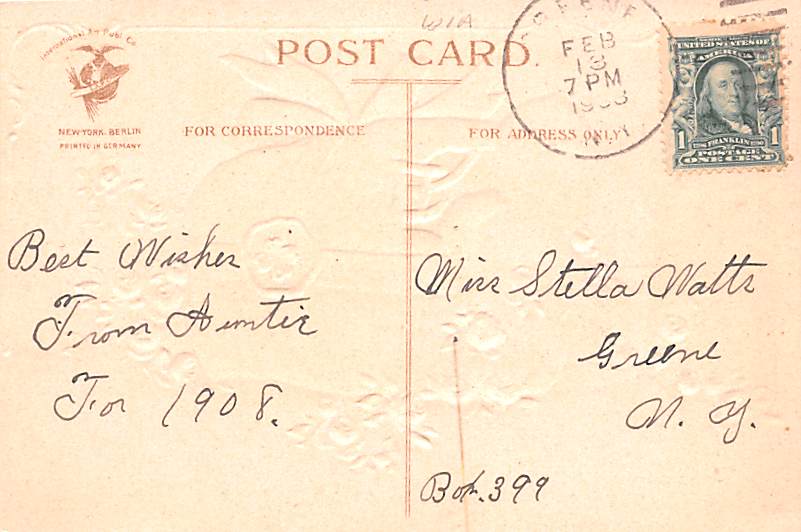 International Art Publ. Co.
NEW-YORK. BERLIN
PRINTED IN GERMANY
WIA
POST CARD.
FOR CORRESPONDENCE
FOR ADDRESS ONLY
GREENE
FEB
13
7 PM
1908
N.Y.
UNITED STATES OF
AMERICA
1 FRANKLIN 1
POSTAGE
ONE CENT
Best Wishes
From Auntie
For 1908.
Miss Stella Watts
Greene
N. Y.
Box. 399